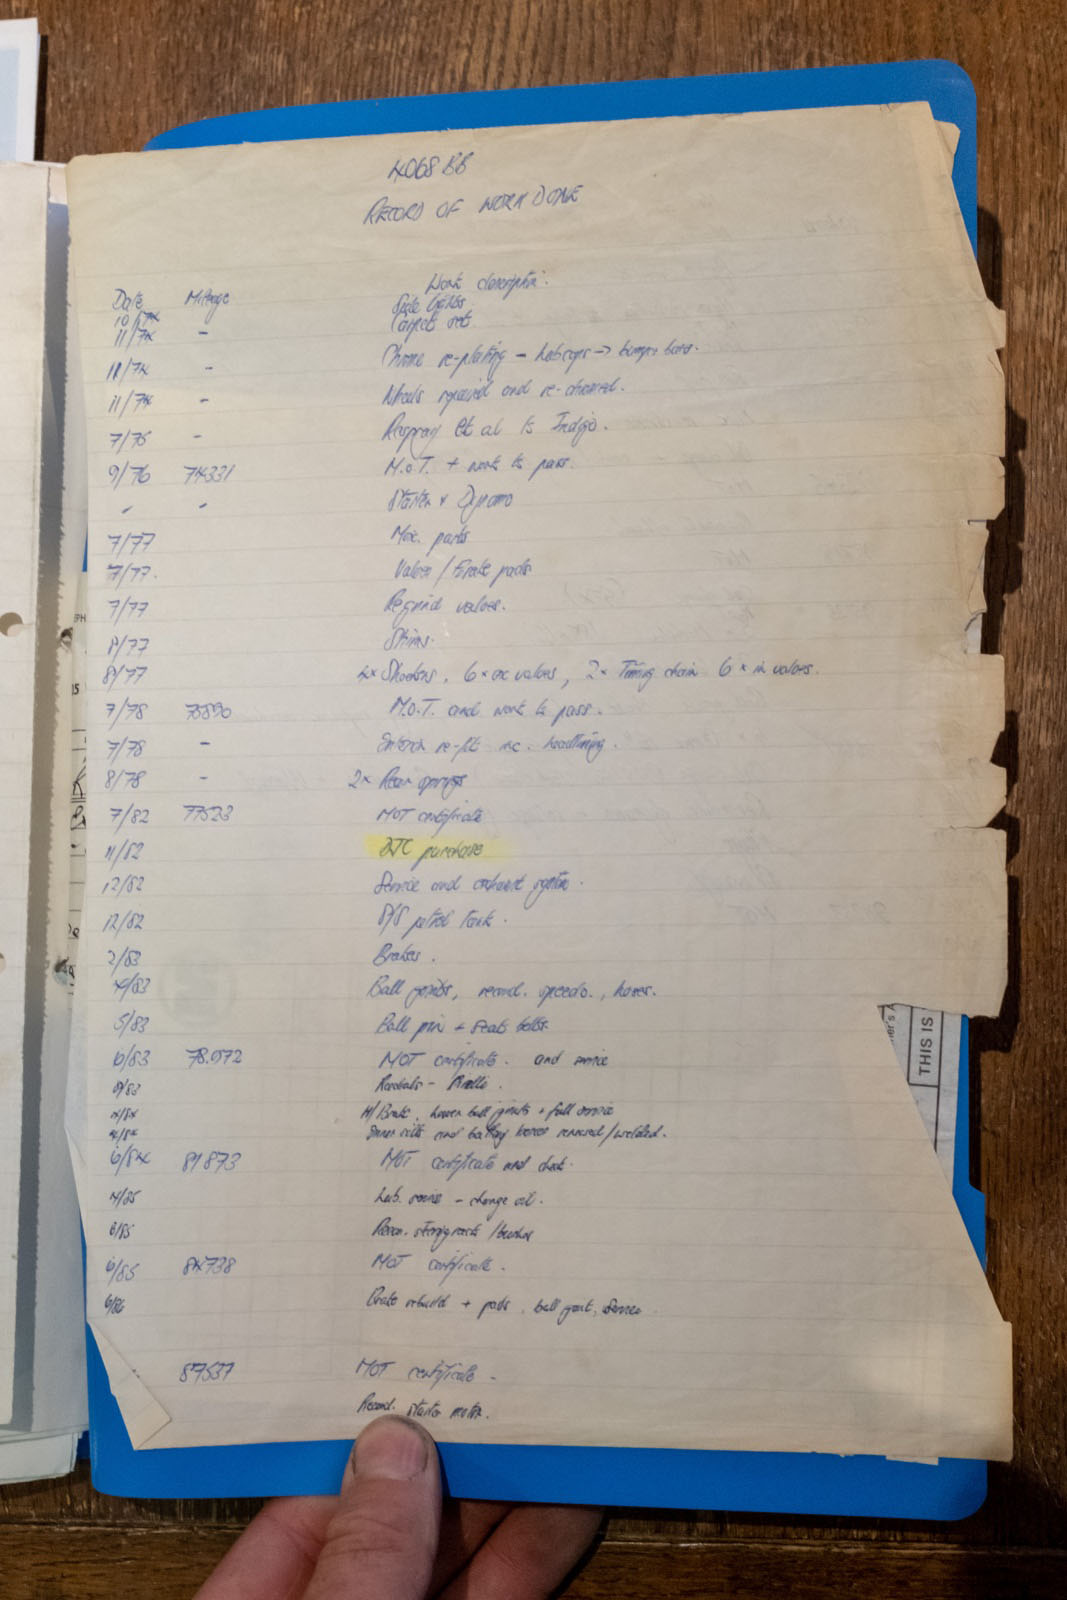 4068 BB
RECORD OF WORK DONE
Work description.
Date Mileage
10/74 Side lights.
11/74 - Carpet set.
11/74 - Chrome re-plating - hubcaps → bumper bars.
11/74 - Wheels repaired and re-chromed.
7/76 - Respray Et al to Indigo.
9/76 74331 M.O.T. + work to pass.
- - Starter + Dynamo
7/77 Misc. parts
7/77. Valves / Brake pads
7/77 Regrind valves.
8/77 Shims.
8/77 4x Shockers, 6 x ex valves, 2x Timing chain 6 x in valves.
7/78 75890 M.O.T. and work to pass.
7/78 - Interior re-fit inc. headlining.
8/78 - 2x Rear springs
7/82 77523 MOT certificate
11/82 purchase
12/82 Service and exhaust system.
12/82 S/S petrol tank.
2/83 Brakes.
4/83 Ball joints, recond. speedo., hoses.
5/83 Ball pin + seats belts.
6/83 78.972 MOT certificate. and service
9/83 Radials - Pirelli.
4/84 H/Brake, lower ball joints + full service
4/84 Inner sills and battery boxes renewed/welded.
6/84 81873 MOT certificate and check.
4/85 Lub. service - change oil.
6/85 Recon. steering rack / bushes
6/85 84738 MOT certificate.
6/86 Brake rebuild + pads, ball joint, service
87537 MOT certificate -
Recond. starter motor.
THIS IS